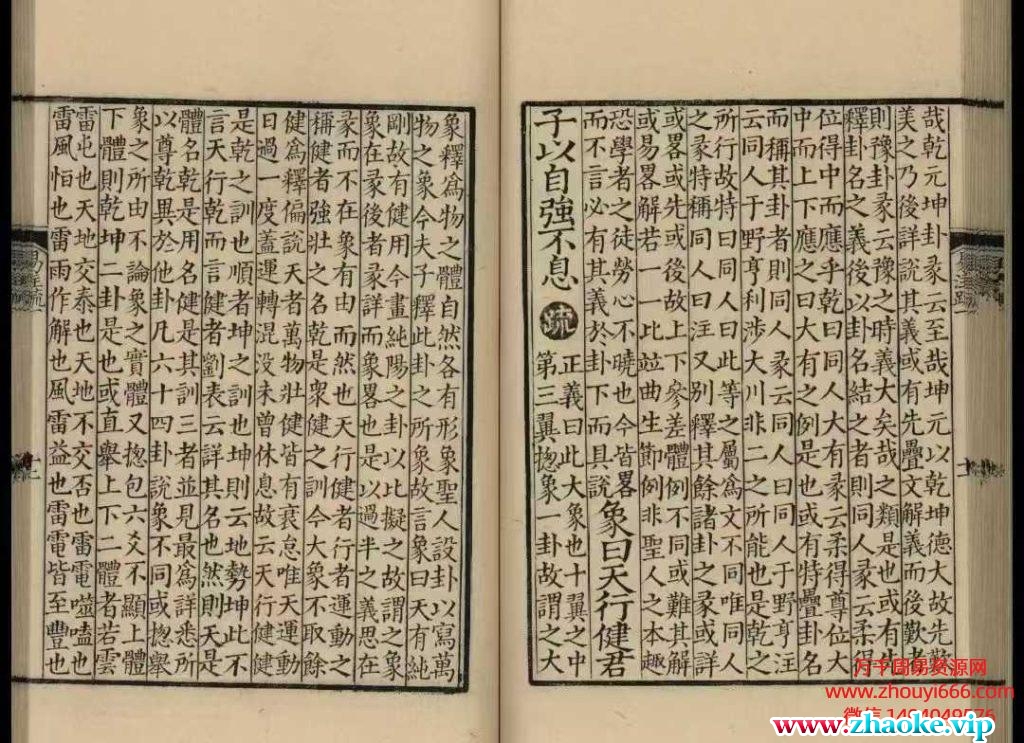 哉乾元坤卦彖云至哉坤元以乾坤德大故先歎
美之乃後詳說其義或有先疊文解義而後歎者
則豫卦彖云豫之時義大矣哉之類是也或有先
釋卦名之義後以卦名結之者則同人彖云柔得
位得中而應乎乾曰同人大有彖云柔得尊位大
中而上下應之曰大有之例是也或有特疊卦名
而稱其卦者則同人彖云同人曰同人于野亨注
云同人于野亨利涉大川非二之所能也是乾之
所行故特曰同人曰此等之屬爲文不同唯同人
之彖特稱同人曰注又別釋其餘諸卦之彖或詳
或畧或先或後故上下參差體例不同或難其解
或易畧解若一一比竝曲生節例非聖人之本趣
恐學者之徒勞心不曉也今皆畧
而不言必有其義於卦下而具說
象曰天行健君
子以自強不息
疏
正義曰此大象也十翼之中
第三翼揔象一卦故謂之大
象釋爲物之體自然各有形象聖人設卦以寫萬
物之象今夫子釋此卦之所象故言象曰天有純
剛故有健用今畫純陽之卦以比擬之故謂之象
象在彖後者彖詳而象畧也是以過半之義思在
彖而不在象有由而然也天行健者行者運動之
稱健者強壯之名乾是衆健之訓今大象不取餘
健爲釋偏說天者萬物壯健皆有衰怠唯天運動
日過一度蓋運轉混没未曾休息故云天行健健
是乾之訓也順者坤之訓也坤則云地勢坤此不
言天行乾而言健者劉表云詳其名也然則天是
體名乾是用名健是其訓三者並見最爲詳悉所
以尊乾異於他卦凡六十四卦說象不同或揔舉
象之所由不論象之實體又揔包六爻不顯上體
下體則乾坤二卦是也或直舉上下二體者若雲
雷屯也天地交泰也天地不交否也雷電噬嗑也
雷風恒也雷雨作解也風雷益也雷電皆至豐也
万千周易资源网
www.zhouyi666.com
www.zhaoke.vip